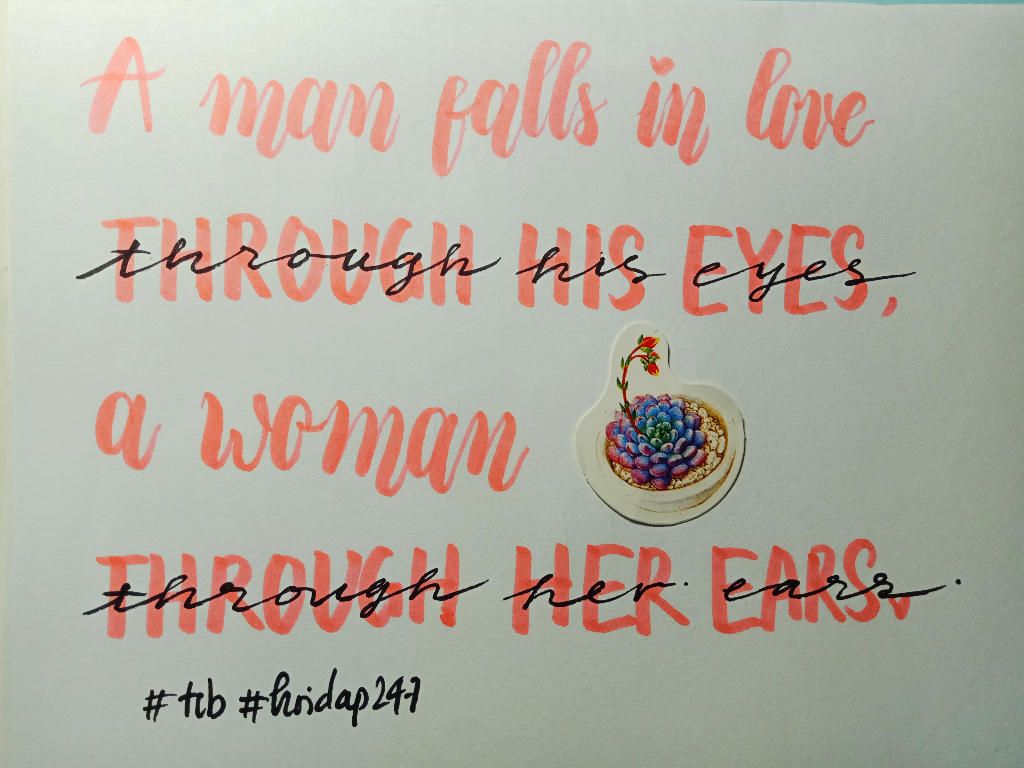 A man falls in love
THROUGH HIS EYES,
through his eyes
a woman
THROUGH HER EARS.
through her ears.
#tcb #hridap247